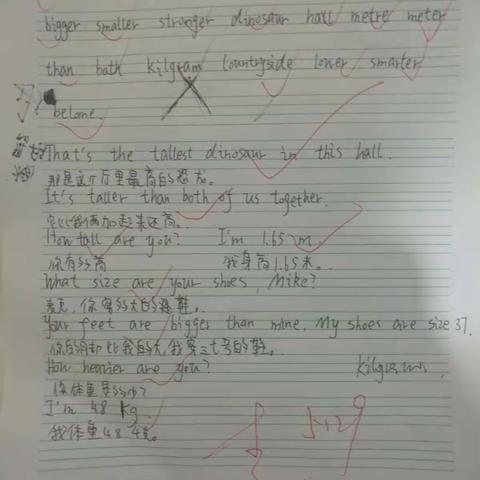 bigger smaller stronger dinosaur hall metre meter
than both kilgram countryside lower smarter
belone
That's the tallest dinosaur in this hall.
那是这个厅里最高的恐龙。
It's taller than both of us together.
它比我俩加起来还高。
How tall are you? I'm 1.65 m.
你有多高 我身高1.65米。
What size are your shoes, Mike?
麦克,你穿多大的鞋。
Your feet are bigger than mine. My shoes are size 37.
你的脚比我的大,我穿三七号的鞋。
How heavier are you?
你体重是多少?
I'm 48 kg.
我体重48千克。
5.12